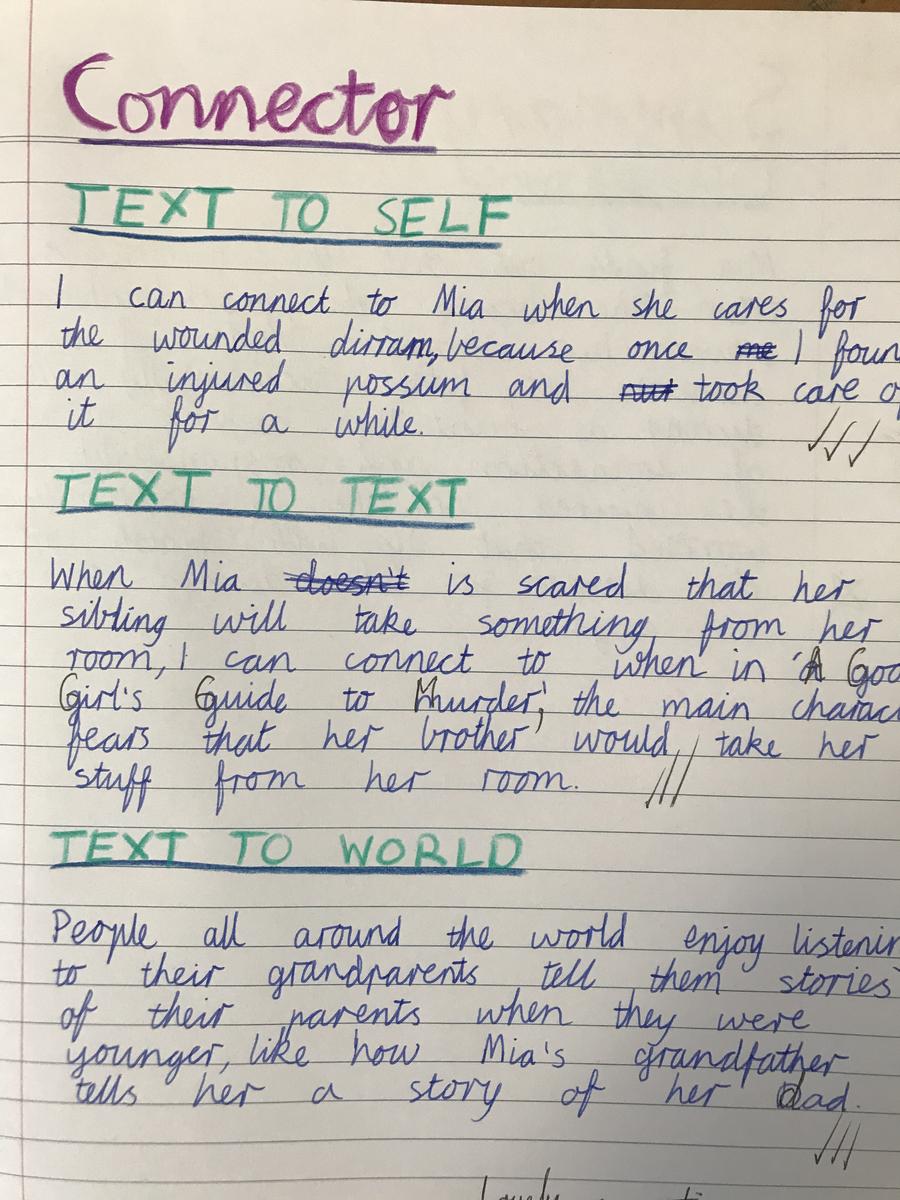 Connector
TEXT TO SELF
I can connect to Mia when she cares for
the wounded dirram, because once me I foun
an injured possum and nut took care o
it for a while.
TEXT TO TEXT
When Mia doesn't is scared that her
sibling will take something from her
room, I can connect to when in 'A Goo
Girl's Guide to Murder', the main charac
fears that her brother would take her
stuff from her room.
TEXT TO WORLD
People all around the world enjoy listenin
to their grandparents tell them stories
of their parents when they were
younger, like how Mia's grandfather
tells her a story of her dad.
Lovely